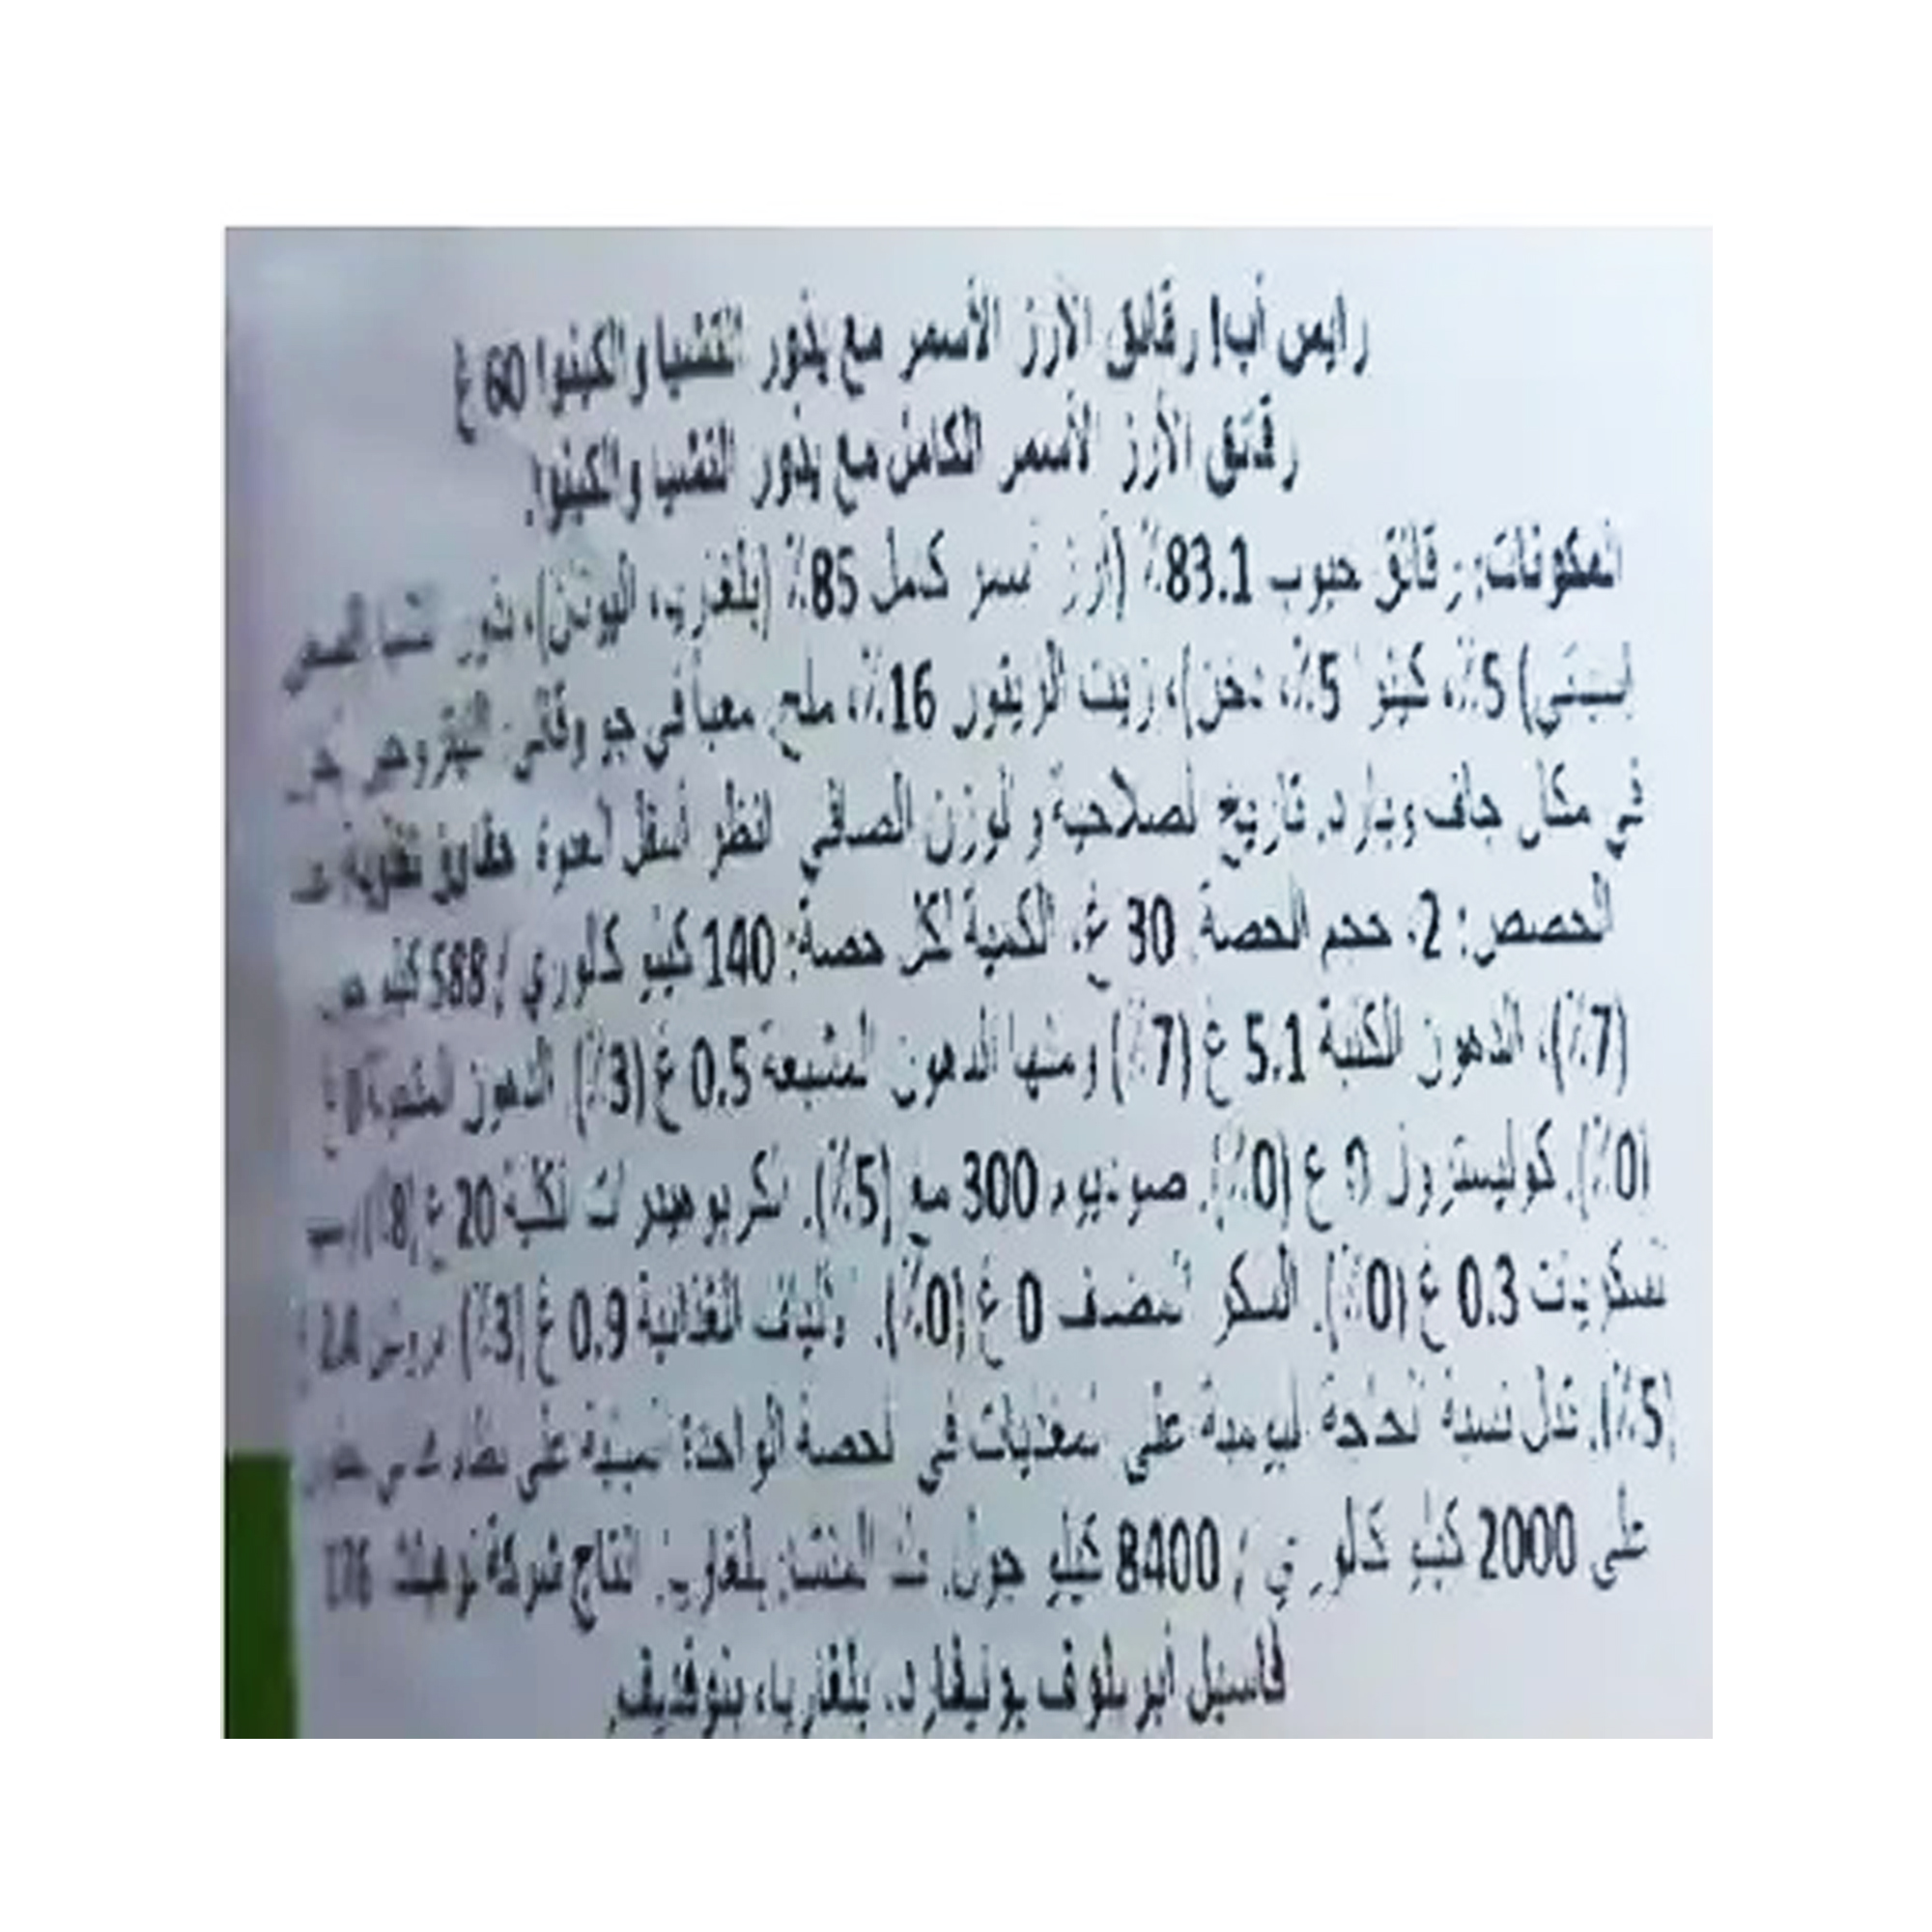 رايس أب! رقائق الأرز الأسمر مع بذور التشيا والكينوا 60 غ
رقائق الأرز الأسمر الكامل مع بذور التشيا والكينوا.
المكونات: رقائق حبوب 83.1٪ (أرز أسمر كامل 85٪ (بلغاريا، اليونان)، بذور التشيا
إسباني) 5٪، كينوا 5٪، دخن)، زيت الزيتون 16٪، ملح. معبأ في جو وقائي.
في مكان جاف وبارد. تاريخ الصلاحية والوزن الصافي انظر أسفل العبوة. حقائق تغذوية: عدد
الحصص: 2، حجم الحصة: 30 غ، الكمية لكل حصة: 140 كيلو كالوري / 588 كيلو جول
(7٪)، الدهون الكلية 5.1 غ (7٪) ومنها الدهون المشبعة 0.5 غ (3٪) الدهون المتحولة 0 غ
(0٪). كوليسترول 0 غ (0٪). صوديوم 300 مغ (5٪). الكربوهيدرات الكلية 20 غ (8٪)،
السكريات 0.3 غ (0٪). السكر المضاف 0 غ (0٪). الألياف الغذائية 0.9 غ (3٪) بروتين 2.4
(5٪). تدل نسبة الحاجة اليومية على المغذيات في الحصة الواحدة المبنية على نظام غذائي
على 2000 كيلو كالوري / 8400 كيلو جول. بلد المنشأ: بلغاريا. إنتاج شركة 176
فاسيل أبريلوف بوليفارد. بلغاريا، بلوفديف.